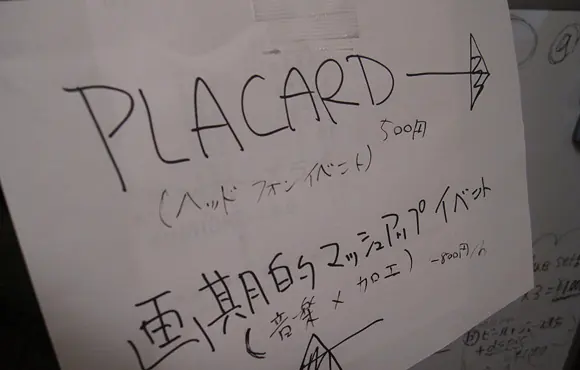 PLACARD
500円
(ヘッドフォンイベント)
画期的マッシュアップイベント
(音楽×加工) -800円/h